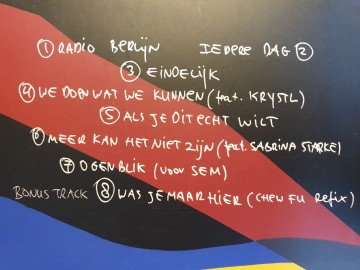 ① RADIO BERLIJN IEDERE DAG ②
③ EINDELIJK
④ WE DOEN WAT WE KUNNEN (feat. KRYSTL)
⑤ ALS JE DIT ECHT WILT
⑥ MEER KAN HET NIET ZIJN (feat. SABRINA STARKE)
⑦ OGENBLIK (VOOR SEM)
BONUS TRACK ⑧ WAS JE MAAR HIER (CHEW FU Refix)